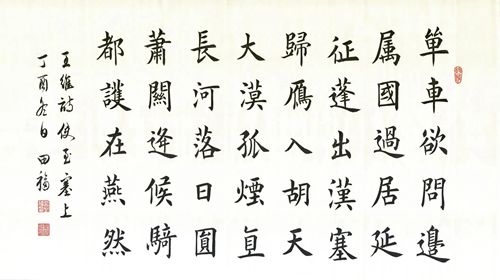 單車欲問邊
属國過居延
征蓬出漢塞
歸鴈入胡天
大漠孤煙直
長河落日圓
蕭關逢候騎
都護在燕然
王維詩使至塞上
丁酉冬日田福